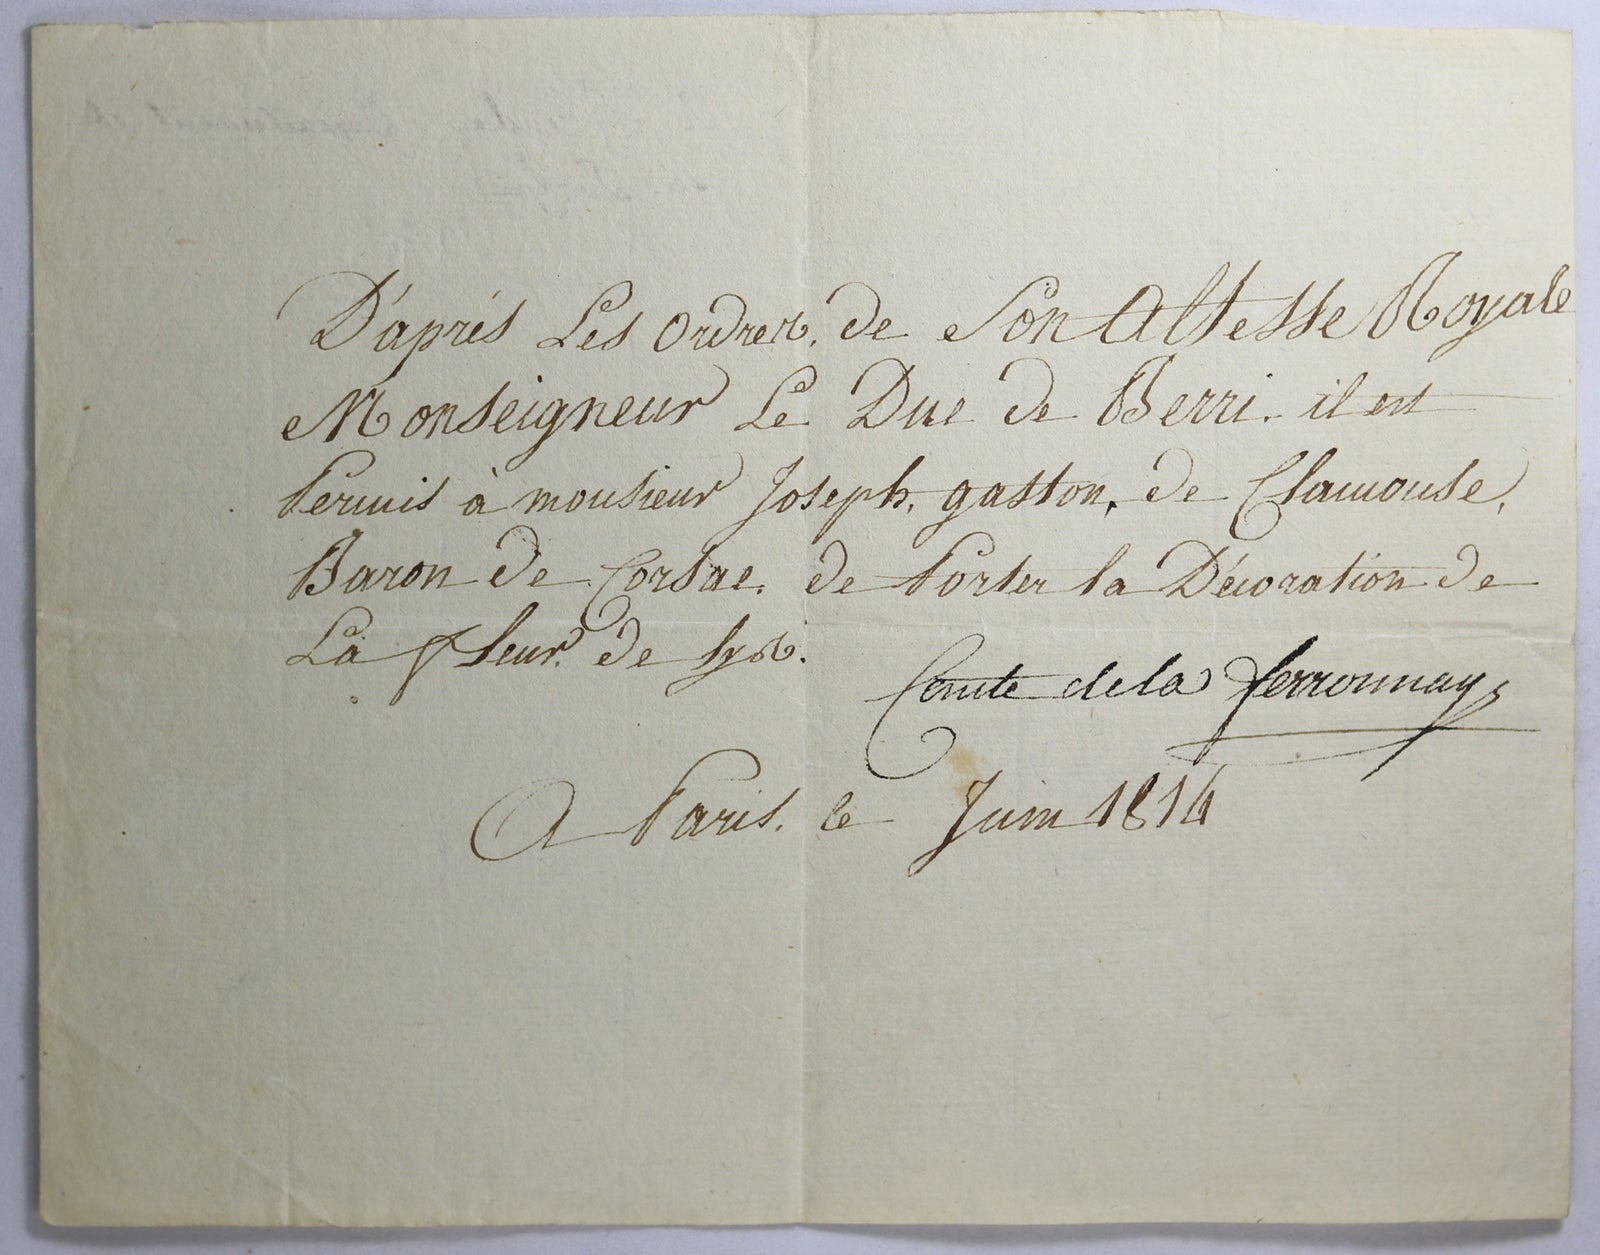 D'aprés Les Ordres. de Son Altesse Royale
Monseigneur Le Duc de Berri. il est
Permis à monsieur Joseph. gaston. de Clamouse,
Baron de Corsac. de Porter la Décoration de
La fleur. de lys.
Comte de la ferronnays
A Paris. le Juin 1814